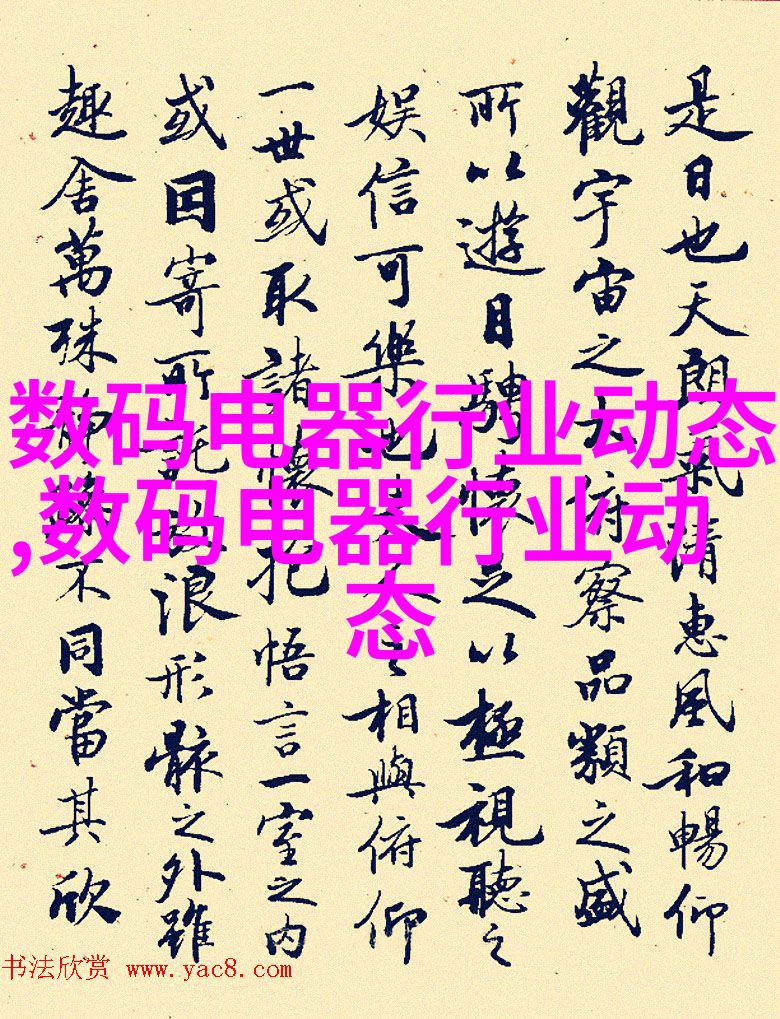 是日也天朗氣清惠風和暢仰
觀宇宙之大俯察品類之盛
所以遊目騁懷足以極視聽之
娱信可樂也夫人之相與俯仰
一世或取諸懷抱悟言一室之内
或因寄所託放浪形骸之外雖
趣舍萬殊静躁不同當其欣
数码电器行业动态
,数码电器行业动
态
书法欣赏 www.yac8.com